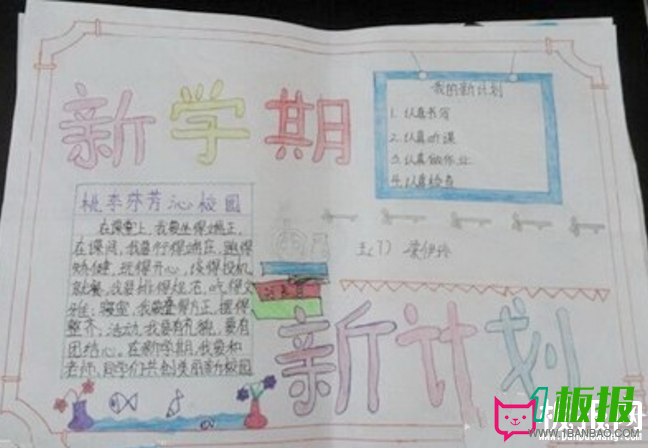 新学期
我的新计划
1. 认真书写
2. 认真听课
3. 认真做作业
4. 认真检查
桃李芬芳沁校园
在课堂上,我要坐得端正,
在课间,我要行得端庄,跑得
矫健,玩得开心,谈得投机
就餐,我要排得整洁,吃得文
雅;寝室,我要叠得方正,摆得
整齐,活动,我要有礼貌,要有
团结心。在新学期,我要和
老师、同学们共创美丽新校园
五(7)
新计划
1板报
WWW.1BANBAO.COM